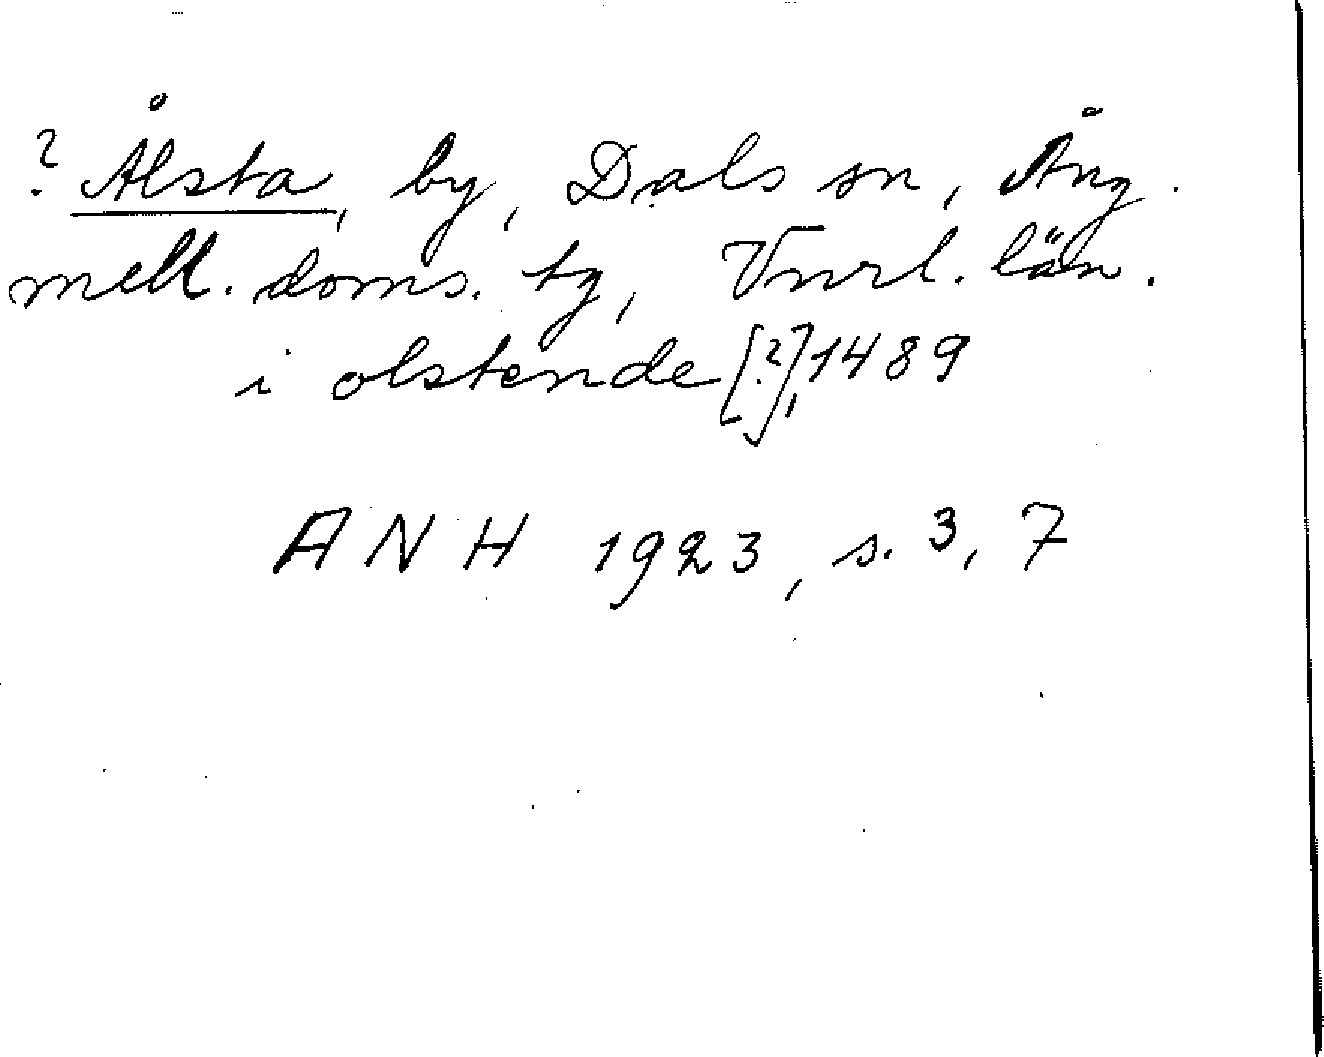 ? Ålsta, by, Dals sn, Ång.
mell. doms. tg, Vnrl. län.
i olstende [?], 1489
ANH 1923, s. 3, 7